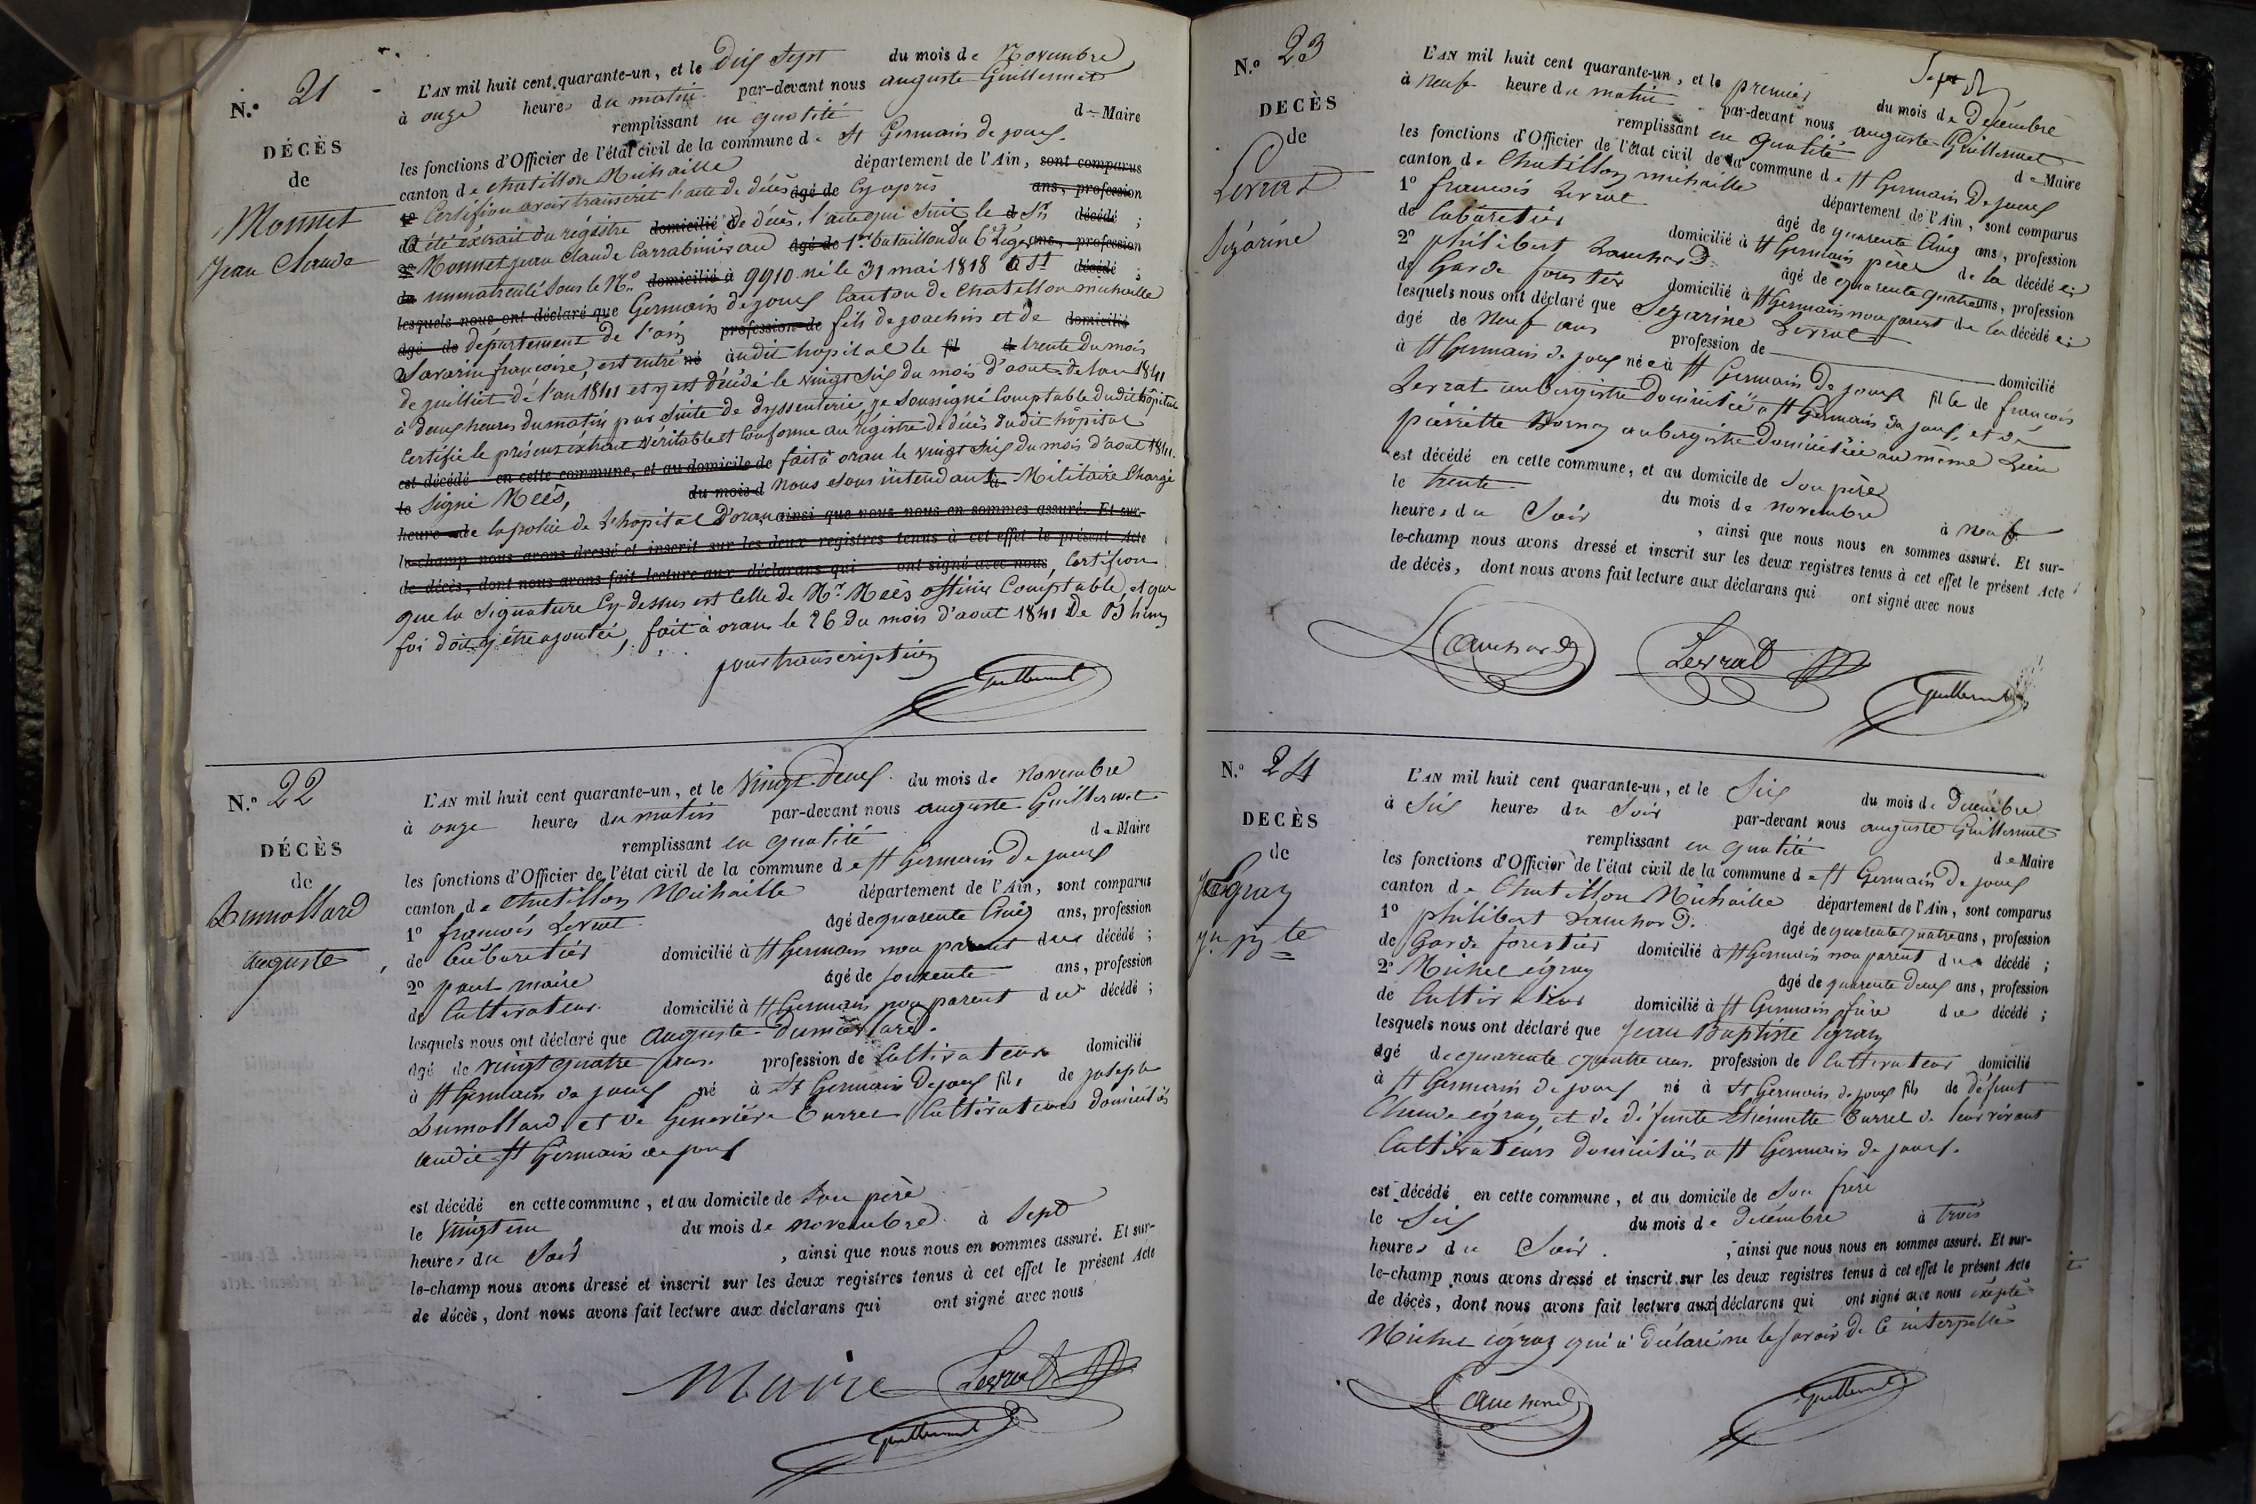 N.° 21
DÉCÈS
de
Monnet
Jean Claude
L'AN mil huit cent quarante-un, et le Dix Sept du mois de Novembre
à onze heures du matin par-devant nous auguste Guillermet
remplissant en qualité de Maire
les fonctions d'Officier de l'état civil de la commune de St Germain de joux
canton de chatillon Michaille département de l'Ain, sont comparus
1° Certifions avoir transcrit l'acte de décès âgé de Cy après ans, profession
d a été éxtrait du régistre domicilié de décès, l'acte qui suit le Sr décédé ;
2° Monnet jean Claude Carrabinier au âgé de 1er bataillon du 6e Léger ans, profession
de immatriculé sous le N° domicilié à 9910 né le 31 mai 1818 à St décédé ;
lesquels nous ont déclaré que Germain de joux Canton de Chatillon michaille
âgé de département de l'ain profession de fils de joachin et de domicilié
Savarin françoise, est entré né audit hopital le fil de trente du mois
de juilliet de l'an 1841 et y est décédé le vingt six du mois d'aout de l'an 1841
à deux heures du matin par suite de dyssenterie je soussigné Comptable dudit hopital
Certifie le présent éxtrait véritable et Conforme au régistre de décès dudit hôpital
est décédé en cette commune, et au domicile de fait à oran le vingt six du mois d'aout 1841.
le signé Meès, du mois d Nous sous intendant Militaire Chargé
heure de la police de L'hopital D'oran ainsi que nous nous en sommes assuré. Et sur-
le-champ nous avons dressé et inscrit sur les deux registres tenus à cet effet le présent Acte
de décès, dont nous avons fait lecture aux déclarans qui ont signé avec nous, Certifions
que la signature Cy-dessus est Celle de Mr Meès officier Comptable, et que
foi doit y être ajoutée, fait à oran le 26 du mois d'aout 1841
pour transcription
Guillermet
N.° 22
DÉCÈS
de
Dumollard
auguste
L'AN mil huit cent quarante-un, et le Vingt Deux du mois de Novembre
à onze heures du matin par-devant nous auguste Guillermet
remplissant en qualité de Maire
les fonctions d'Officier de l'état civil de la commune de St Germain de joux
canton de Chatillon Michaille département de l'Ain, sont comparus
1° françois Levrat âgé de quarente Cinq ans, profession
de Cabaretier domicilié à St Germain non parent du décédé ;
2° paul maire âgé de soixente ans, profession
de Cultivateur domicilié à St Germain non parent du décédé ;
lesquels nous ont déclaré que auguste Dumollard.
âgé de vingt quatre ans. profession de Cultivateur domicilié
à St Germain de joux né à St Germain de joux fils de joseph
Dumollard et de Geneviève Burrel Cultivateurs domiciliés
audit St Germain de joux
est décédé en cette commune, et au domicile de Son père
le vingt un du mois de novembre à Sept
heures du Soir, ainsi que nous nous en sommes assuré. Et sur-
le-champ nous avons dressé et inscrit sur les deux registres tenus à cet effet le présent Acte
de décès, dont nous avons fait lecture aux déclarans qui ont signé avec nous
Maire Levrat
Guillermet
N.° 23
DECÈS
de
Levrat
Sézarine
L'AN mil huit cent quarante-un, et le premier du mois de Décembre
à neuf heure du matin par-devant nous auguste Guillermet
remplissant en qualité de Maire
les fonctions d'Officier de l'état civil de la commune de St Germain de joux
canton de Chatillon michaille département de l'Ain, sont comparus
1° françois Levrat âgé de quarente Cinq ans, profession
de Cabaretier domicilié à St Germain père de la décédée ;
2° philibert Lauchard âgé de quarente quatre ans, profession
de Garde forestier domicilié à St Germain non parent de la décédée ;
lesquels nous ont déclaré que Sezarine Levrat
âgé de Neuf ans profession de domicilié
à St Germain de joux née à St Germain De joux fille de françois
Levrat aubergiste Domicilié à St Germain de joux, et de
pierrette aubergiste Domiciliée au même Lieu
est décédé en cette commune, et au domicile de Son père
le trente du mois de novembre à neuf
heures du Soir, ainsi que nous nous en sommes assuré. Et sur-
le-champ nous avons dressé et inscrit sur les deux registres tenus à cet effet le présent Acte
de décès, dont nous avons fait lecture aux déclarans qui ont signé avec nous
Lauchard Levrat
Guillermet
N.° 24
DECÈS
de
Egraz
jn Bte
L'AN mil huit cent quarante-un, et le Six du mois de Décembre
à Six heures du Soir par-devant nous auguste Guillermet
remplissant en qualité de Maire
les fonctions d'Officier de l'état civil de la commune de St Germain de joux
canton de Chatillon Michaille département de l'Ain, sont comparus
1° philibert Lauchard. âgé de quarente quatre ans, profession
de Garde forestier domicilié à St Germain non parent du décédé ;
2° Michel égraz âgé de quarente deux ans, profession
de Cultivateur domicilié à St Germain frère du décédé ;
lesquels nous ont déclaré que Jean Baptiste Egraz
âgé de quarente quatre ans. profession de Cultivateur domicilié
à St Germain de joux né à St Germain de joux fils de défunt
Claude égraz et de défunte Etiennette Burrel de leur vivant
Cultivateurs domiciliés à St Germain de joux.
est décédé en cette commune, et au domicile de Son frère
le Six du mois de Décembre à trois
heures du Soir. ; ainsi que nous nous en sommes assuré. Et sur-
le-champ nous avons dressé et inscrit sur les deux registres tenus à cet effet le présent Acte
de décès, dont nous avons fait lecture aux déclarans qui ont signé avec nous éxepté
Michel égraz qui a déclaré ne le savoir de Ce interpellé
Lauchard Guillermet